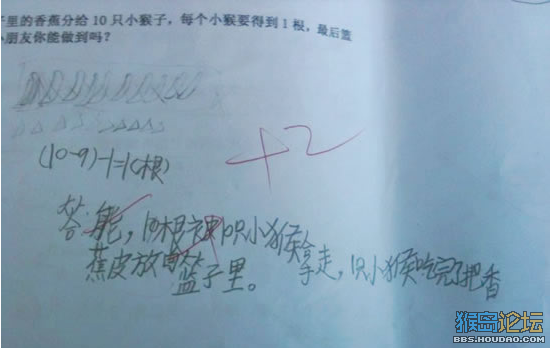 子里的香蕉分给10只小猴子，每个小猴要得到1根，最后篮
小朋友你能做到吗？
(10-9)-1=1(根)
+2
答：能，10根被10只小猴拿走，1只小猴吃完了把香
蕉皮放
篮子里。
猴岛论坛
BBS.HOUDAO.COM